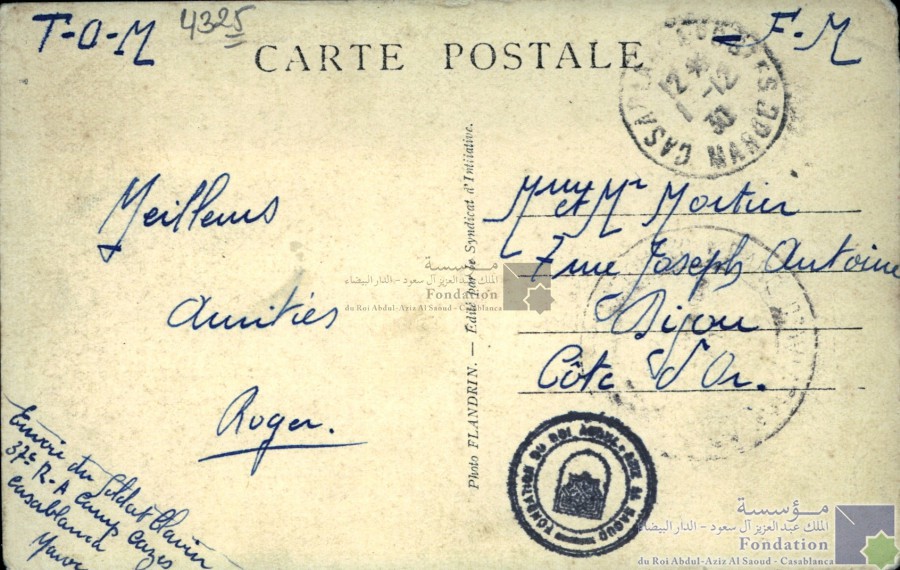 T-O-M
4325
F-M
CARTE POSTALE
CASABLANCA POSTES
MAROC
12 *
1-12
30
Meilleurs
Amitiés
Roger.
Envoi du Soldat
37e R-A camp Cazes
Casablanca
Maroc
Photo FLANDRIN. — Édité par le Syndicat d'Initiative.
Mme et Mr Mortier
7 rue Joseph Antoine
Dijon
Côte d'Or.
FONDATION DU ROI ABDUL-AZIZ AL SAOUD
مؤسسة
الملك عبدالعزيز آل سعود - الدار البيضاء
Fondation
du Roi Abdul-Aziz Al Saoud - Casablanca
مؤسسة
الملك عبدالعزيز آل سعود - الدار البيضاء
Fondation
du Roi Abdul-Aziz Al Saoud - Casablanca